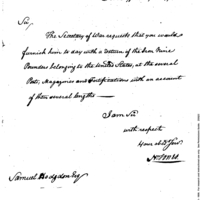 Sir,
The Secretary of War requests that you would
furnish him to day with a return of the Iron Nine
Pounders belonging to the United States, at the several
Posts, Magazines and Fortifications with an account
of their several lengths —
I am Sir
with respect
Your obd. Serv.
Samuel Hodgdon Esq